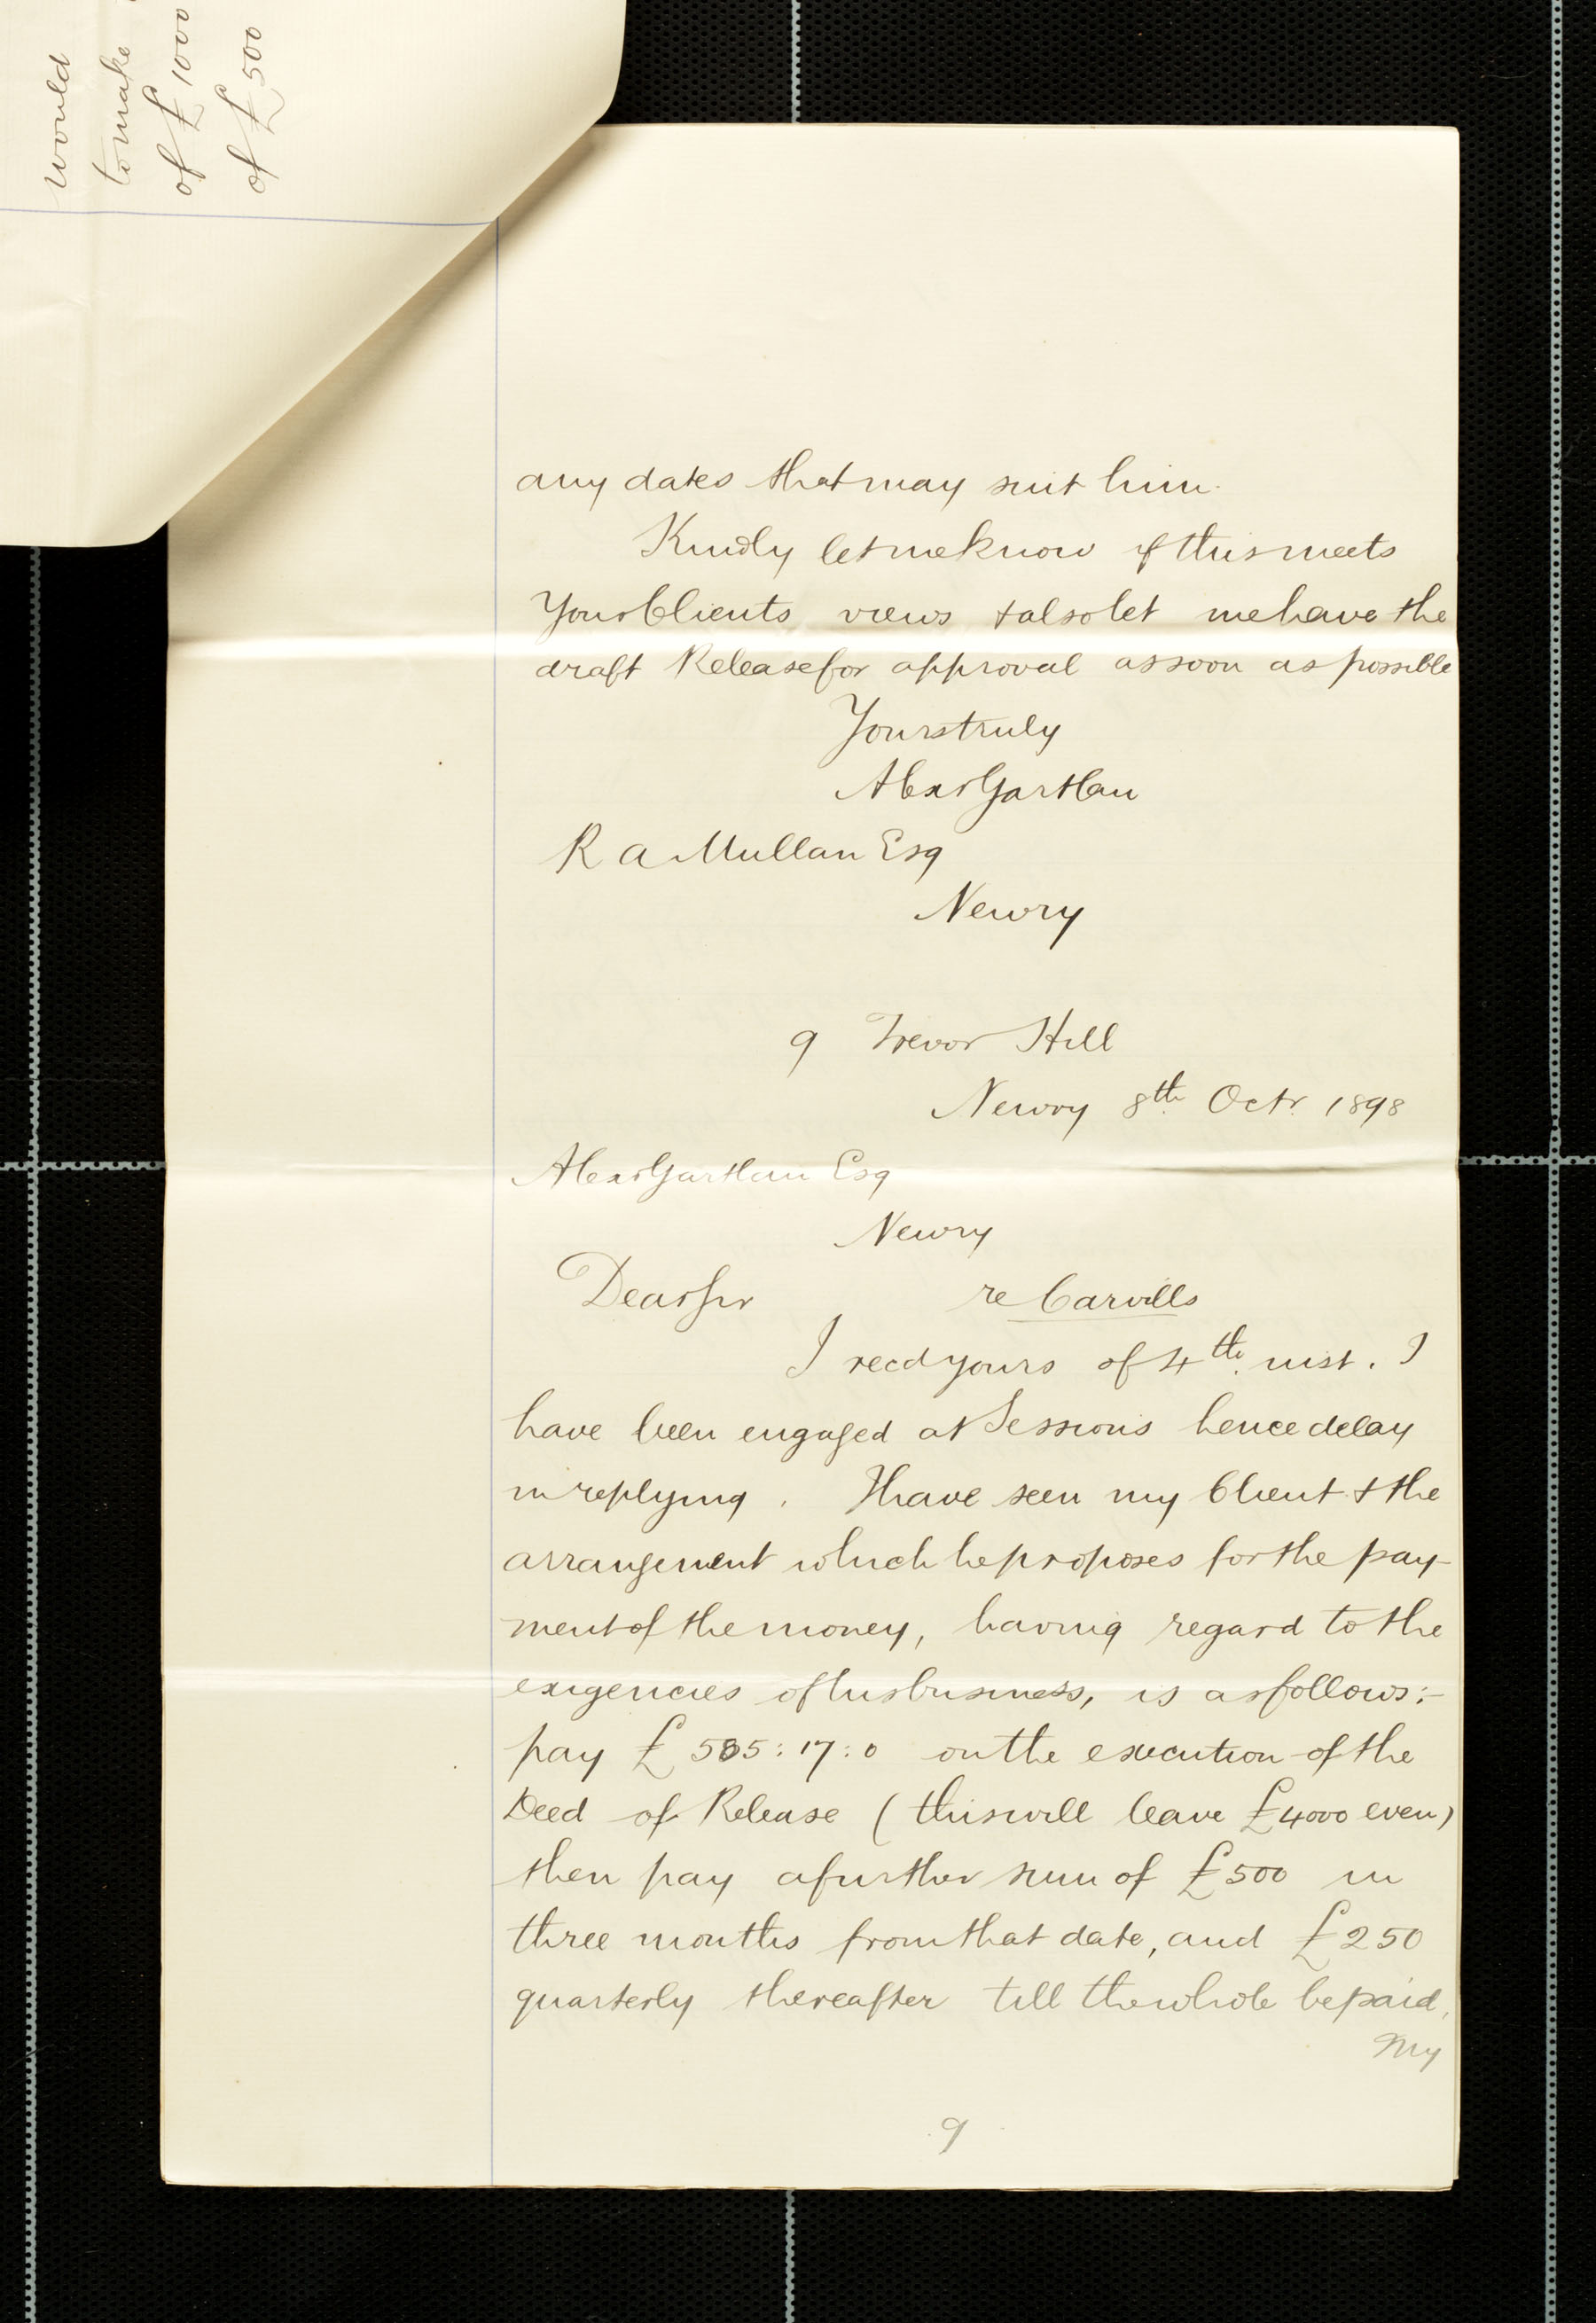 would
to make
of £1000
of £500
any dates that may suit him.
Kindly let me know if this meets
Your Clients views & also let me have the
draft Release for approval as soon as possible
Yours truly
Alexr Gartlan
R A Mullan Esq
Newry
9 Trevor Hill
Newry 8th Octr. 1898
Alexr Gartlan Esq
Newry
Dear Sir re Carvills
I recd yours of 4th. inst. I
have been engaged at Sessions hence delay
in replying. I have seen my Client & the
arrangement which he proposes for the pay-
ment of the money, having regard to the
exigencies of his business, is as follows:-
pay £585:17:0 on the execution of the
Deed of Release (this will leave £4000 even)
then pay a further sum of £500 in
three months from that date, and £250
quarterly thereafter till the whole be paid.
My
9